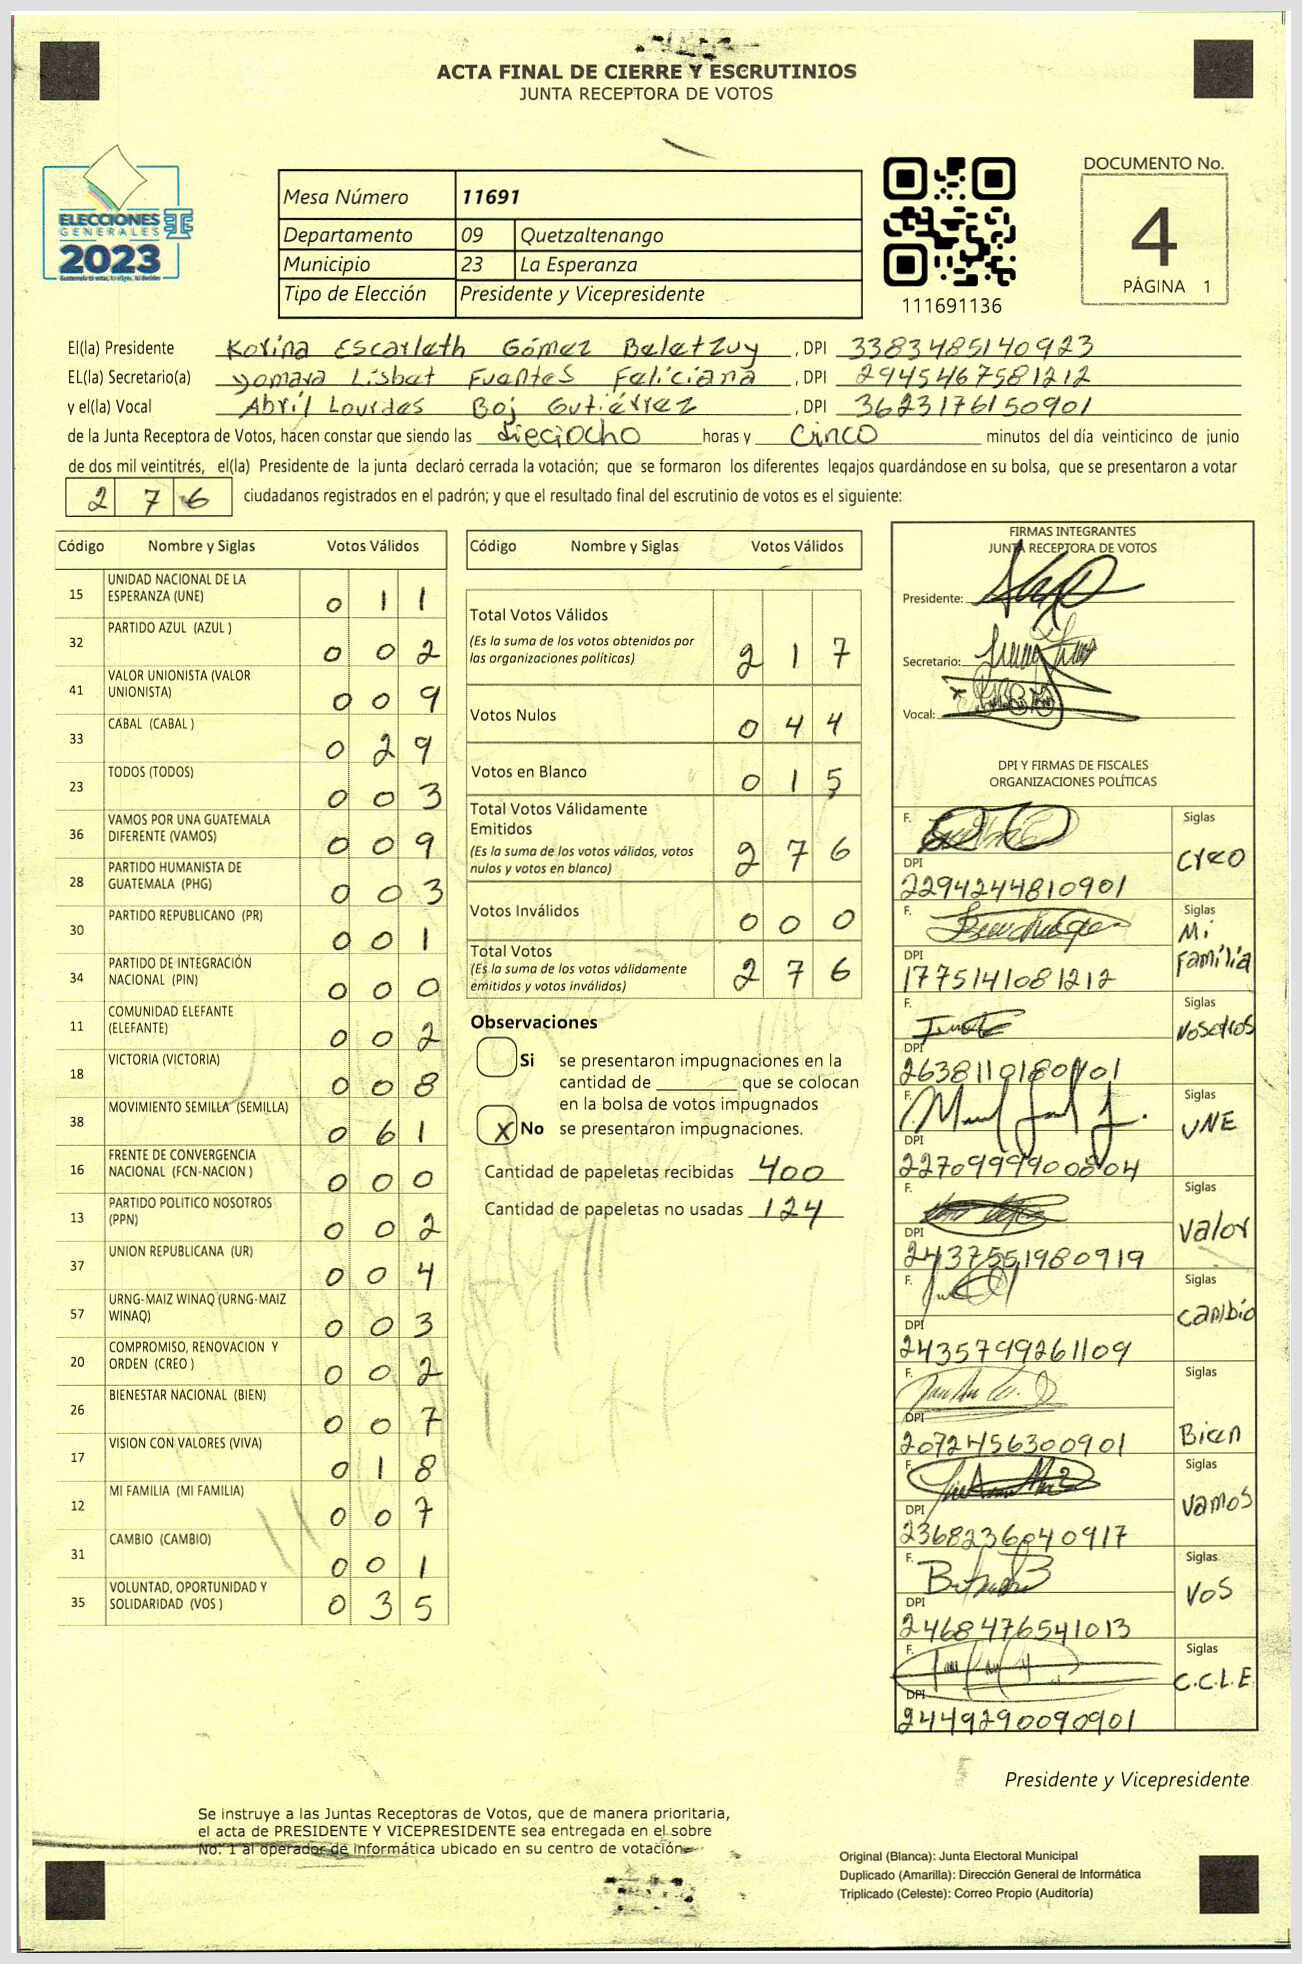 ACTA FINAL DE CIERRE Y ESCRUTINIOS
JUNTA RECEPTORA DE VOTOS
ELECCIONES
GENERALES
2023
Mesa Número 11691
Departamento 09 Quetzaltenango
Municipio 23 La Esperanza
Tipo de Elección Presidente y Vicepresidente
111691136
DOCUMENTO No.
4
PÁGINA 1
El(la) Presidente Korina Escarleth Gómez Beletzuy , DPI 3383485140923
EL(la) Secretario(a) Yomara Lisbet Fuentes Feliciana , DPI 2945467581212
y el(la) Vocal Abril Lourdes Boj Gutiérrez , DPI 3623176150901
de la Junta Receptora de Votos, hacen constar que siendo las dieciocho horas y cinco minutos del día veinticinco de junio
de dos mil veintitrés, el(la) Presidente de la junta declaró cerrada la votación; que se formaron los diferentes legajos quardándose en su bolsa, que se presentaron a votar
276 ciudadanos registrados en el padrón; y que el resultado final del escrutinio de votos es el siguiente:
Código Nombre y Siglas Votos Válidos
15 UNIDAD NACIONAL DE LA ESPERANZA (UNE) 011
32 PARTIDO AZUL (AZUL ) 002
41 VALOR UNIONISTA (VALOR UNIONISTA) 009
33 CABAL (CABAL ) 029
23 TODOS (TODOS) 003
36 VAMOS POR UNA GUATEMALA DIFERENTE (VAMOS) 009
28 PARTIDO HUMANISTA DE GUATEMALA (PHG) 003
30 PARTIDO REPUBLICANO (PR) 001
34 PARTIDO DE INTEGRACIÓN NACIONAL (PIN) 000
11 COMUNIDAD ELEFANTE (ELEFANTE) 002
18 VICTORIA (VICTORIA) 008
38 MOVIMIENTO SEMILLA (SEMILLA) 061
16 FRENTE DE CONVERGENCIA NACIONAL (FCN-NACION ) 000
13 PARTIDO POLITICO NOSOTROS (PPN) 002
37 UNION REPUBLICANA (UR) 004
57 URNG-MAIZ WINAQ (URNG-MAIZ WINAQ) 003
20 COMPROMISO, RENOVACION Y ORDEN (CREO ) 002
26 BIENESTAR NACIONAL (BIEN) 007
17 VISION CON VALORES (VIVA) 018
12 MI FAMILIA (MI FAMILIA) 007
31 CAMBIO (CAMBIO) 001
35 VOLUNTAD, OPORTUNIDAD Y SOLIDARIDAD (VOS ) 035
Código Nombre y Siglas Votos Válidos
Total Votos Válidos
(Es la suma de los votos obtenidos por
las organizaciones políticas) 217
Votos Nulos 044
Votos en Blanco 015
Total Votos Válidamente
Emitidos
(Es la suma de los votos válidos, votos
nulos y votos en blanco) 276
Votos Inválidos 000
Total Votos
(Es la suma de los votos válidamente
emitidos y votos inválidos) 276
Observaciones
Si se presentaron impugnaciones en la
cantidad de ________ que se colocan
en la bolsa de votos impugnados
X No se presentaron impugnaciones.
Cantidad de papeletas recibidas 400
Cantidad de papeletas no usadas 124
FIRMAS INTEGRANTES
JUNTA RECEPTORA DE VOTOS
Presidente:
Secretario:
Vocal:
DPI Y FIRMAS DE FISCALES
ORGANIZACIONES POLÍTICAS
F. Siglas
Creo
DPI
2294244810901
F. Siglas
Mi
Familia
DPI
1775141081212
F. Siglas
Vosotros
DPI
F. Siglas
UNE
DPI
F. Siglas
Valor
DPI
2437551980919
F. Siglas
Cambio
DPI
2435799261109
F. Siglas
Bien
DPI
2072456300901
F. Siglas
Vamos
DPI
2368236040917
F. Siglas
VOS
DPI
2468476541013
F. Siglas
C.C.L.E
DPI
2449290090901
Presidente y Vicepresidente
Se instruye a las Juntas Receptoras de Votos, que de manera prioritaria,
el acta de PRESIDENTE Y VICEPRESIDENTE sea entregada en el sobre
No. 1 al operador de informática ubicado en su centro de votación
Original (Blanca): Junta Electoral Municipal
Duplicado (Amarilla): Dirección General de Informática
Triplicado (Celeste): Correo Propio (Auditoría)